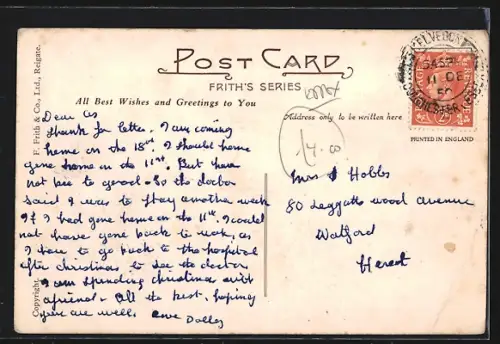 POST CARD
FRITH'S SERIES
All Best Wishes and Greetings to You
Address only to be written here
PRINTED IN ENGLAND
F. Frith & Co., Ltd., Reigate.
Copyright.
KELVEDON
COLCHESTER
11 DE
50
Dear
thanks for letter. I am coming
home on the 18th. I should home
gone home on the 11th. But have
not been to good. So the doctor
said I was to stay another week
If I had gone home on the 11th. I could
not have gone back to work, as
I have to go back to the hospital
after christmas to see the doctor
I am spending christmas with
a friend. All the best. hoping
you are well.
Dolly
Mrs Hobbs
80 Leggatts wood avenue
Watford
Herts